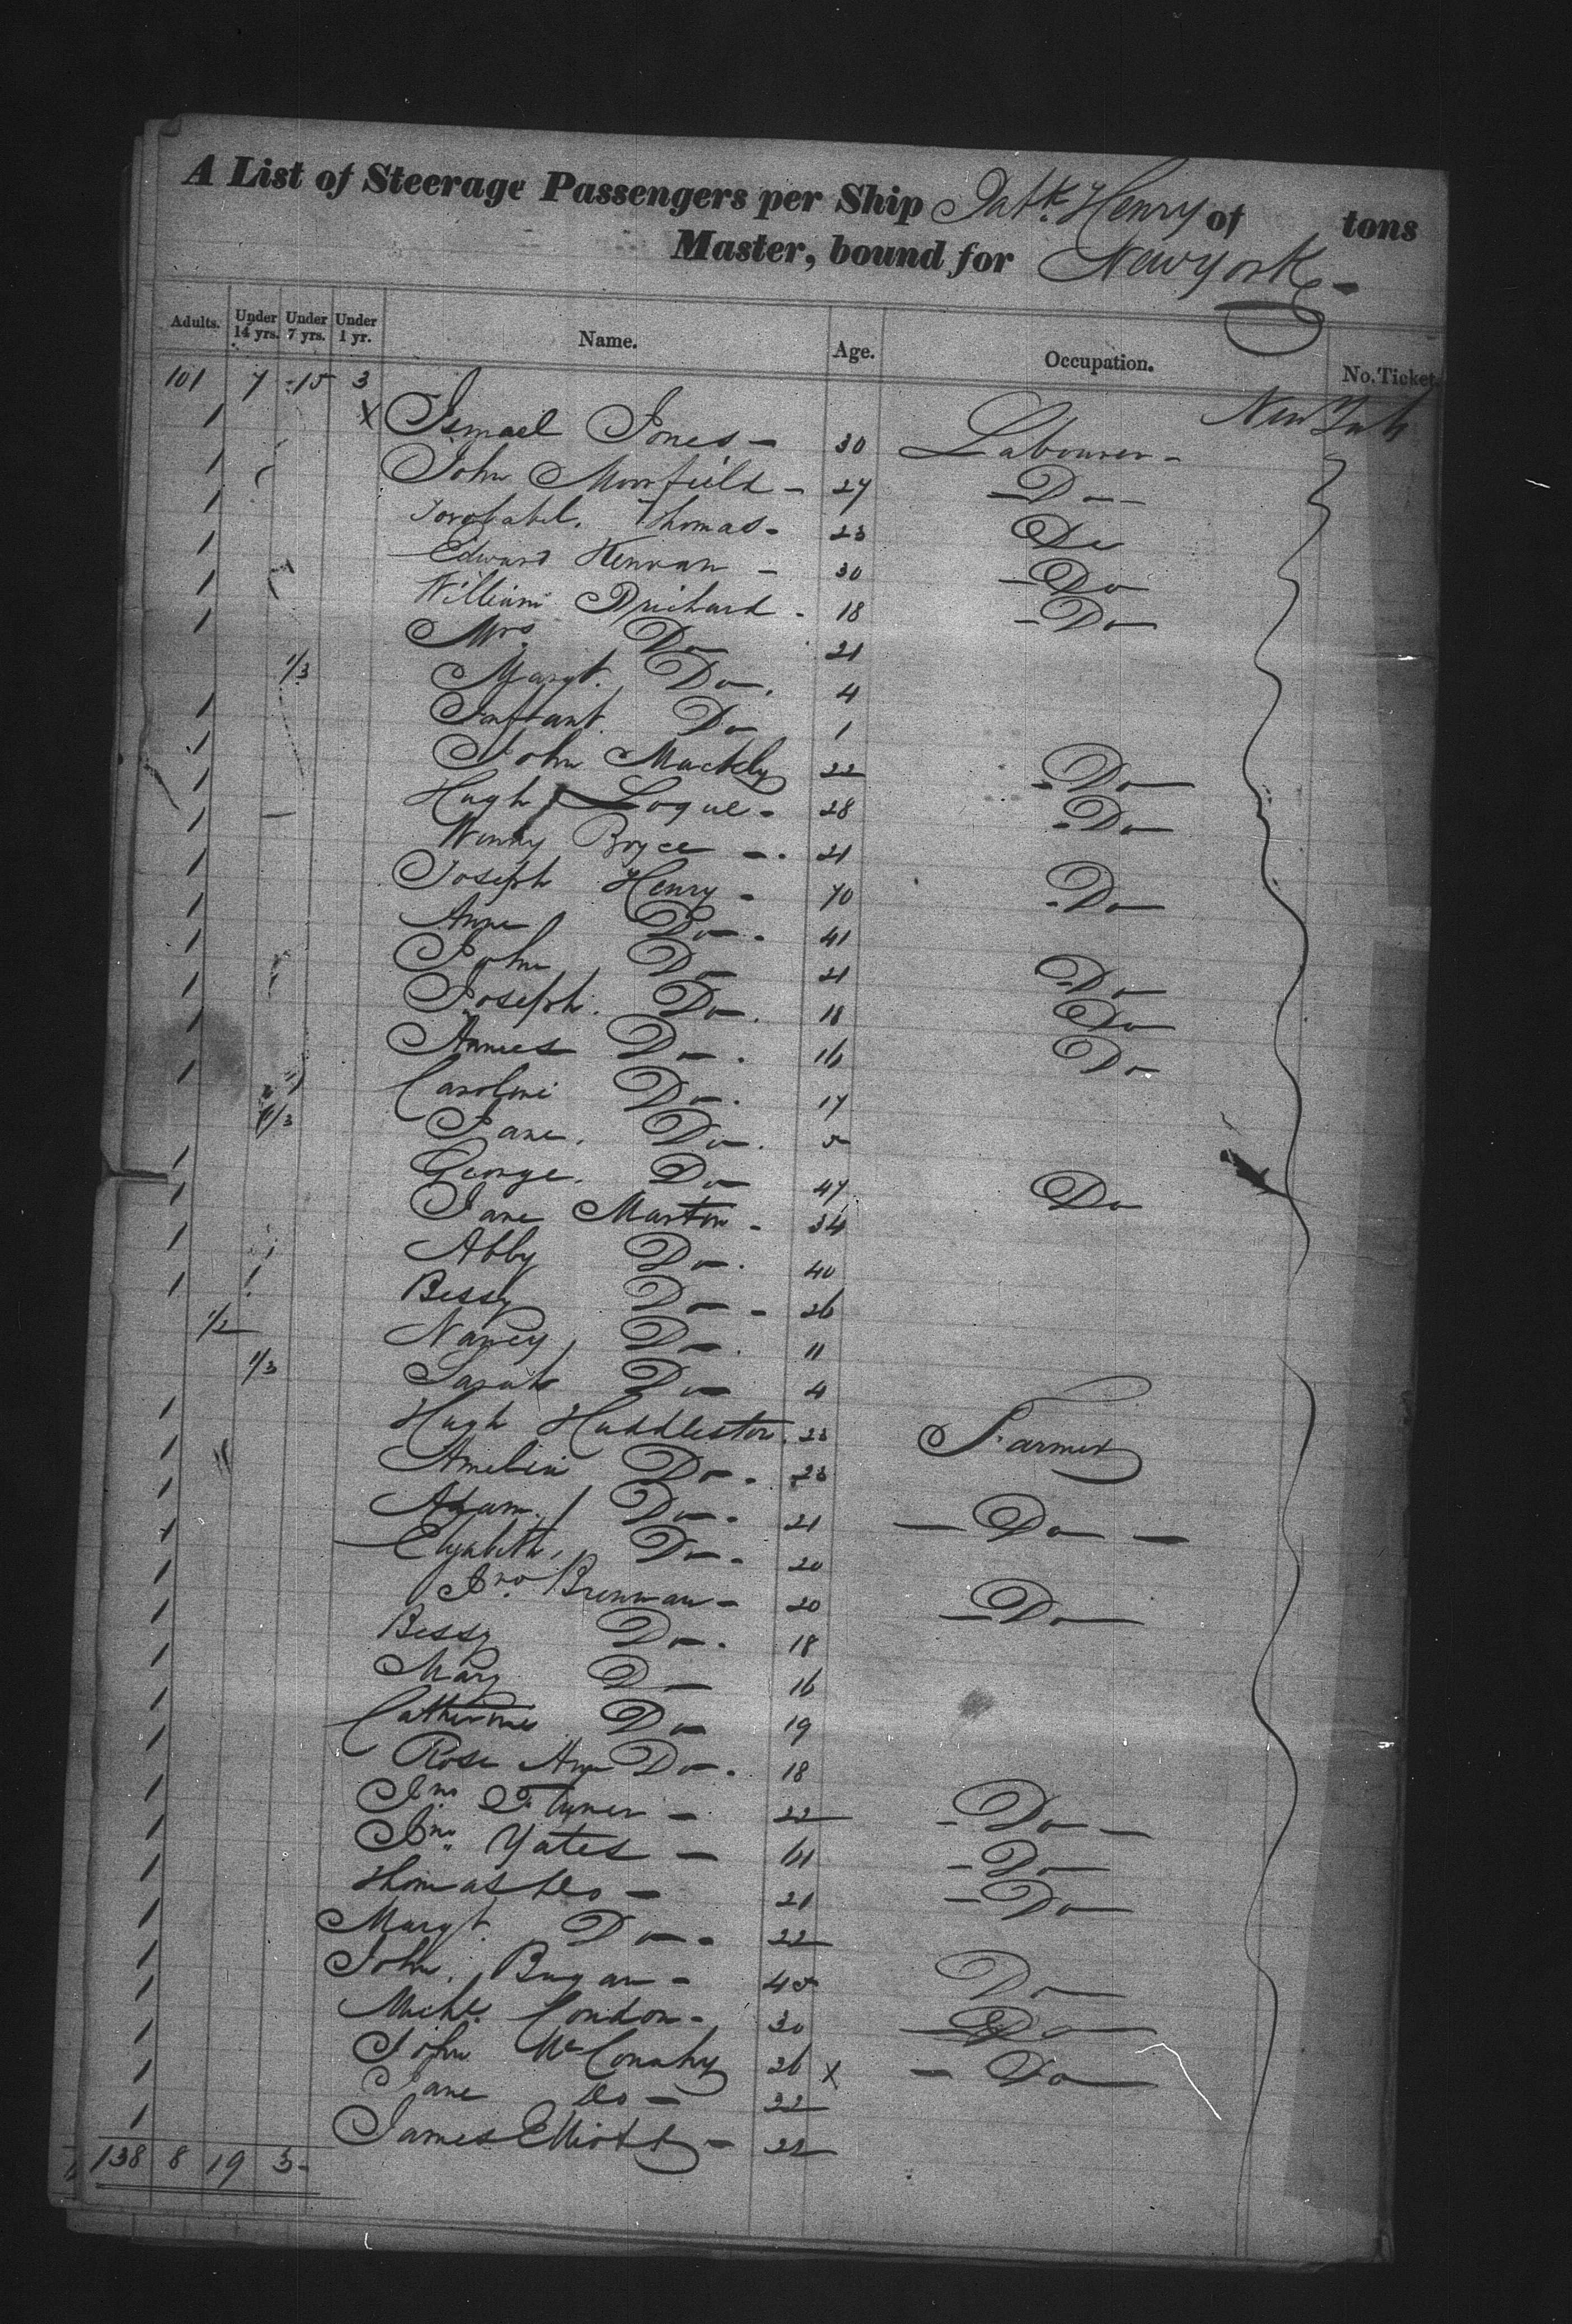 A List of Steerage Passengers per Ship Patk. Henry of tons
Master, bound for New York
Adults. Under 14 yrs. Under 7 yrs. Under 1 yr. Name. Age. Occupation. No. Ticket
101 7 15 3
New York
1 X Ismael Jones 30 Labourer
1 John Moorfield 27 Do
1 Thomas 23 Do
1 Edward 30 Do
1 William Prichard 18 Do
1 Mrs. Do 21
1/3 Margt. Do 4
Infant Do 1
1 John Mackly 22 Do
1 Hugh Logue 28 Do
1 Boyce 21
1 Joseph Henry 70 Do
1 Anne Do 41
1 John Do 21 Do
1 Joseph Do 18 Do
1 Do 16 Do
1 Caroline Do 17
1/3 Jane Do 5
1 George Do 47 Do
1 Jane Martin 34
1 Abby Do 40
1 Bessy Do 26
1/2 Nancy Do 11
1/3 Sarah Do 4
1 Hugh Huddleston 23 Farmer
1 Amelia Do 23
1 Adam Do 21 Do
1 Elizabeth Do 20
1 Jno. Brennan 20 Do
1 Bessy Do 18
1 Mary Do 16
1 Catherine Do 19
1 Rose Ann Do 18
1 Jno. 22 Do
1 Jno. Yates 61 Do
1 Thomas Do 21 Do
1 Margt. Do 22
1 John 45 Do
1 Michl. Condon 30 Do
1 John McConahy 26 X Do
1 Jane Do 22
1 James Elliott 22
138 8 19 3